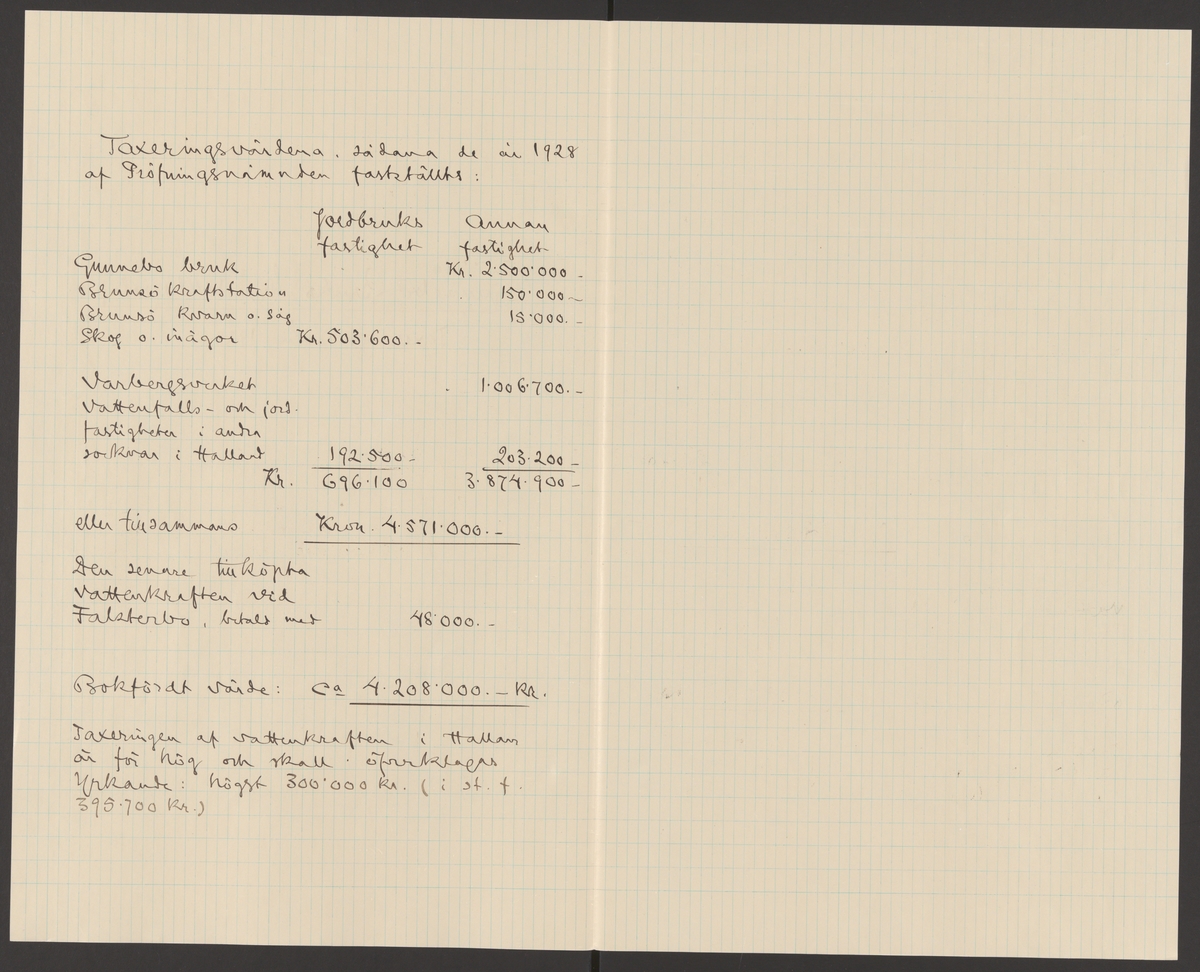 Taxeringsvärdena, sådana de år 1928
af Pröfningsnämnden fastställts:
Jordbruks Annan
fastighet fastighet
Gunnebo bruk Kr. 2·500·000 -
Brunsö kraftstation 150·000 -
Brunsö kvarn o. såg 15·000. -
Skog o. inägor Kr. 503·600. -
Varbergsverket 1·006·700. -
Vattenfalls- och jord-
fastigheter i andra
socknar i Halland 192·500 - 203·200 -
Kr. 696·100 3·874·900 -
eller tillsammans Kron. 4·571·000. -
Den senare tillköpta
vattenkraften vid
Falsterbo, betald med 48·000. -
Bokfördt värde: ca 4·208·000. - kr.
Taxeringen af vattenkraften i Halland
är för hög och skall öfverklagas
Yrkande: högst 300·000 kr. (i st. f.
395·700 kr.)